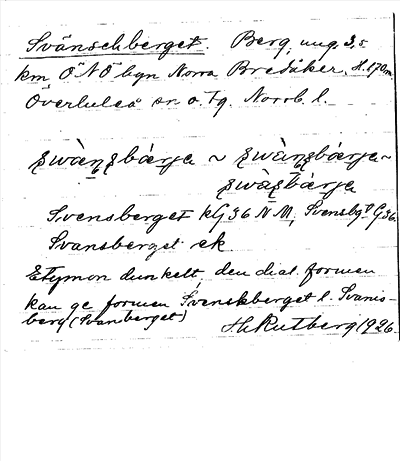 Svänschberget. Berg, ung. 3,5
km ÖNÖ byn Norra Bredåker. H. 170 m
Överluleå sn. o. tg. Norrb. l.
Svensberget kG36 NM, Svensbgt G36.
Svansberget ek.
Etymon dunkelt, den dial. formen
kan ge formen Svenskberget l. Svanis-
berg (Svanberget)
H. Rutberg 1926